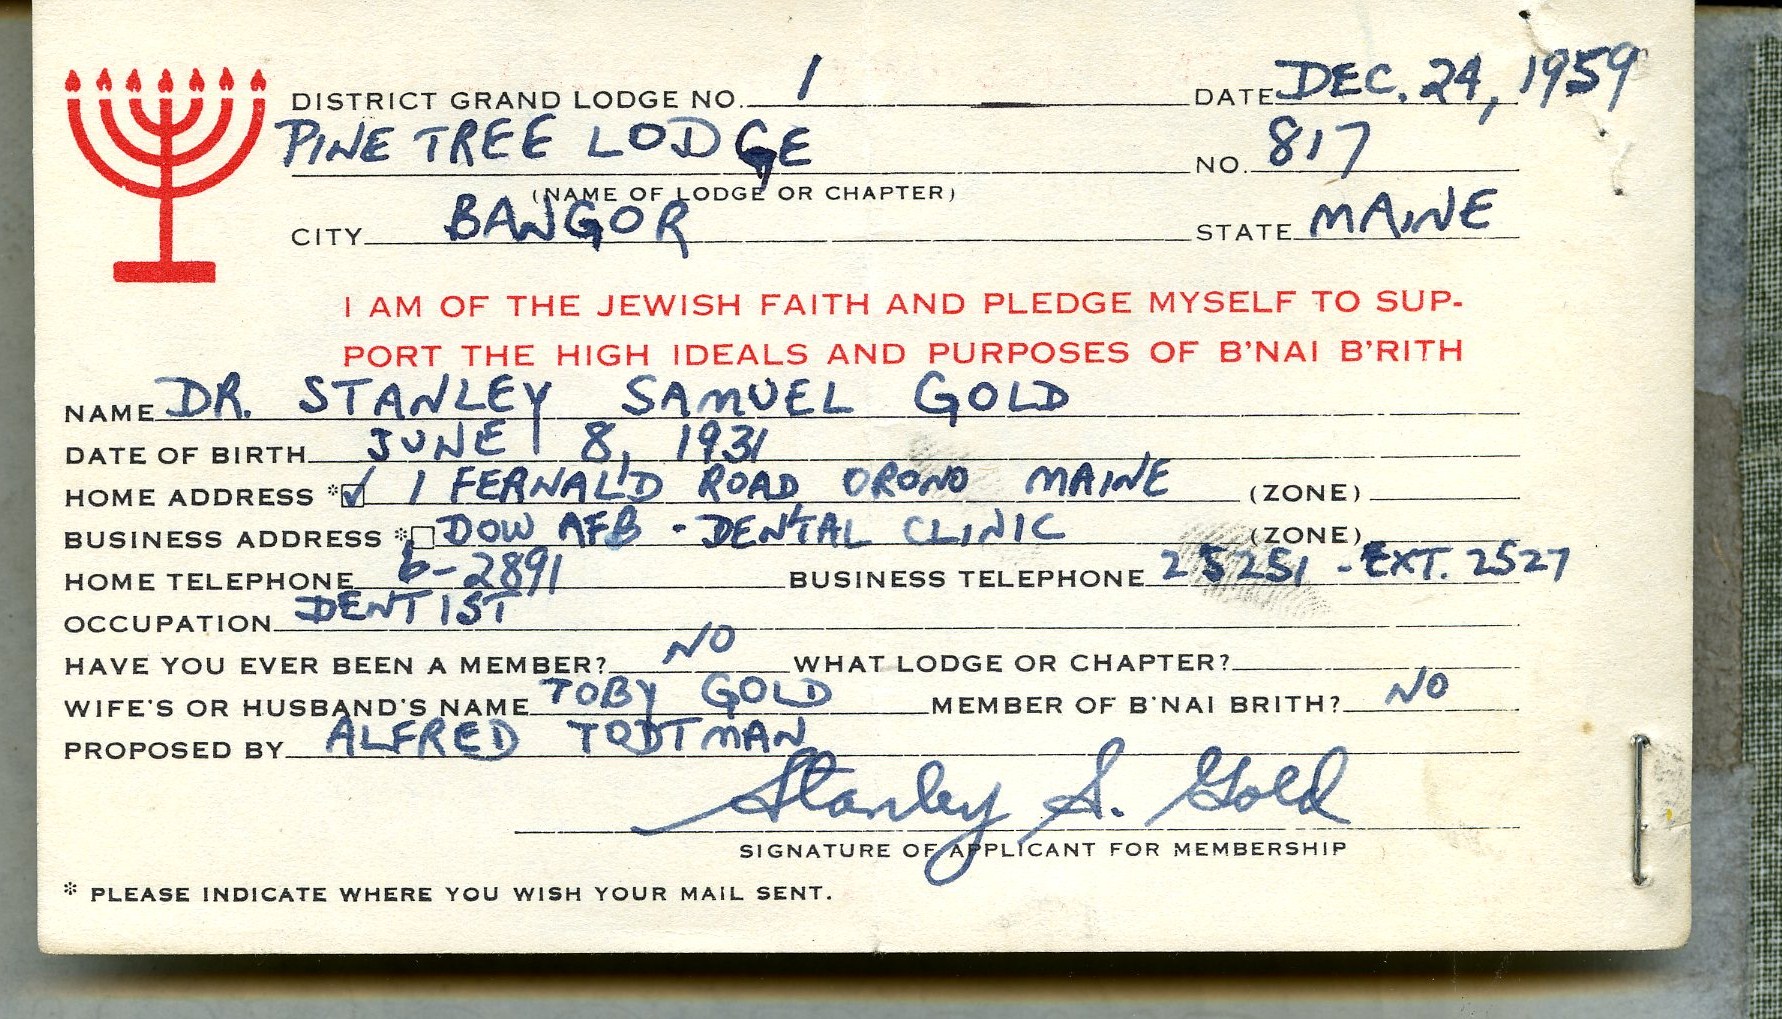 DISTRICT GRAND LODGE NO. 1 DATE DEC. 24, 1959
PINE TREE LODGE NO. 817
(NAME OF LODGE OR CHAPTER)
CITY BANGOR STATE MAINE
I AM OF THE JEWISH FAITH AND PLEDGE MYSELF TO SUP-
PORT THE HIGH IDEALS AND PURPOSES OF B'NAI B'RITH
NAME DR. STANLEY SAMUEL GOLD
DATE OF BIRTH JUNE 8, 1931
HOME ADDRESS *☑ 1 FERNALD ROAD ORONO MAINE (ZONE)
BUSINESS ADDRESS *☐ DOW AFB - DENTAL CLINIC (ZONE)
HOME TELEPHONE 6-2891 BUSINESS TELEPHONE 25251 - EXT. 2527
OCCUPATION DENTIST
HAVE YOU EVER BEEN A MEMBER? NO WHAT LODGE OR CHAPTER?
WIFE'S OR HUSBAND'S NAME TOBY GOLD MEMBER OF B'NAI BRITH? NO
PROPOSED BY ALFRED TROTMAN
Stanley S. Gold
SIGNATURE OF APPLICANT FOR MEMBERSHIP
* PLEASE INDICATE WHERE YOU WISH YOUR MAIL SENT.